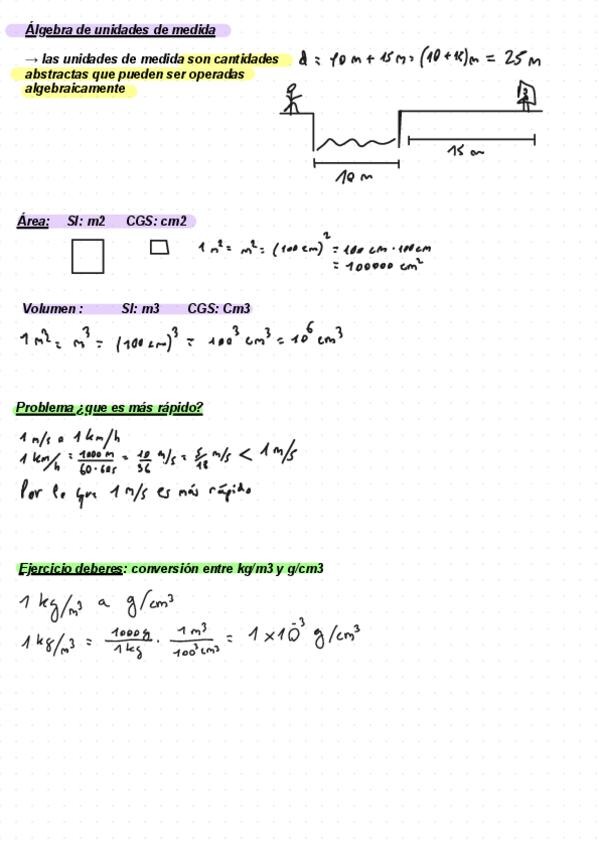 Álgebra de unidades de medida
→ las unidades de medida son cantidades
abstractas que pueden ser operadas
algebraicamente
d = 10 m + 15 m = (10 + 15) m = 25 m
10 m
15 m
Área: SI: m2 CGS: cm2
1 m² = m² = (100 cm)² = 100 cm · 100 cm
= 100000 cm²
Volumen : SI: m3 CGS: Cm3
1 m³ = m³ = (100 cm)³ = 100³ cm³ = 10⁶ cm³
Problema ¿que es más rápido?
1 m/s o 1 km/h
1 km/h = 1000 m / 60·60s = 10/36 m/s = 5/18 m/s < 1 m/s
Por lo que 1 m/s es más rápido
Ejercicio deberes: conversión entre kg/m3 y g/cm3
1 kg/m³ a g/cm³
1 kg/m³ = 1000g / 1kg · 1 m³ / 100³ cm³ = 1 x 10⁻³ g/cm³